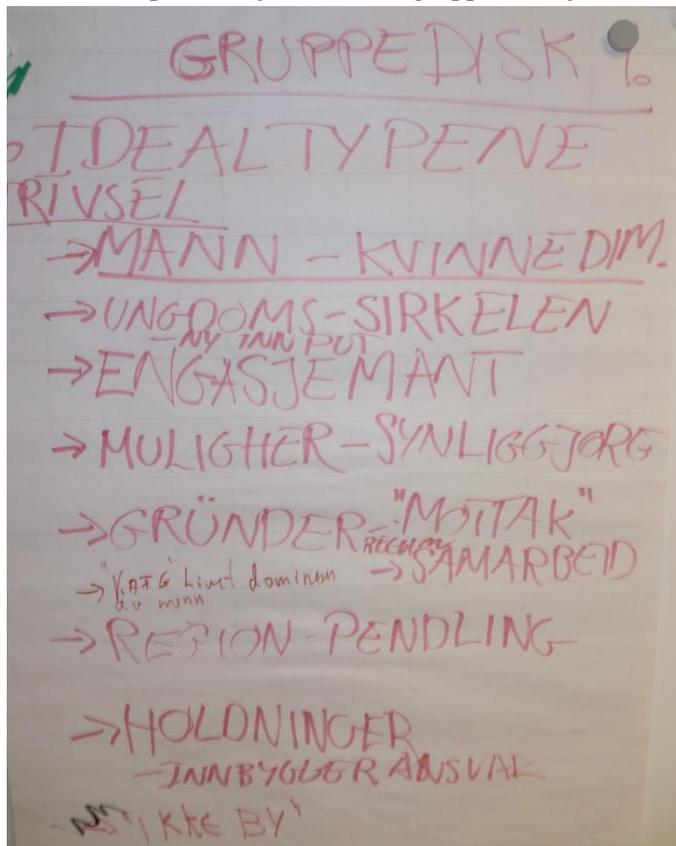 GRUPPEDISK
IDEALTYPENE
RIVSEL
→ MANN - KVINNEDIM.
→ UNGDOMS-SIRKELEN
- NY INNPUT
→ ENGASJEMANT
→ MULIGHER - SYNLIGGJØRE
→ GRÜNDER - "MOTTAK"
→ SAMARBEID
→ livet dominem
av menn
→ REGION - PENDLING
→ HOLDNINGER
- INNBYGGER ANSVAR
IKKE BY'